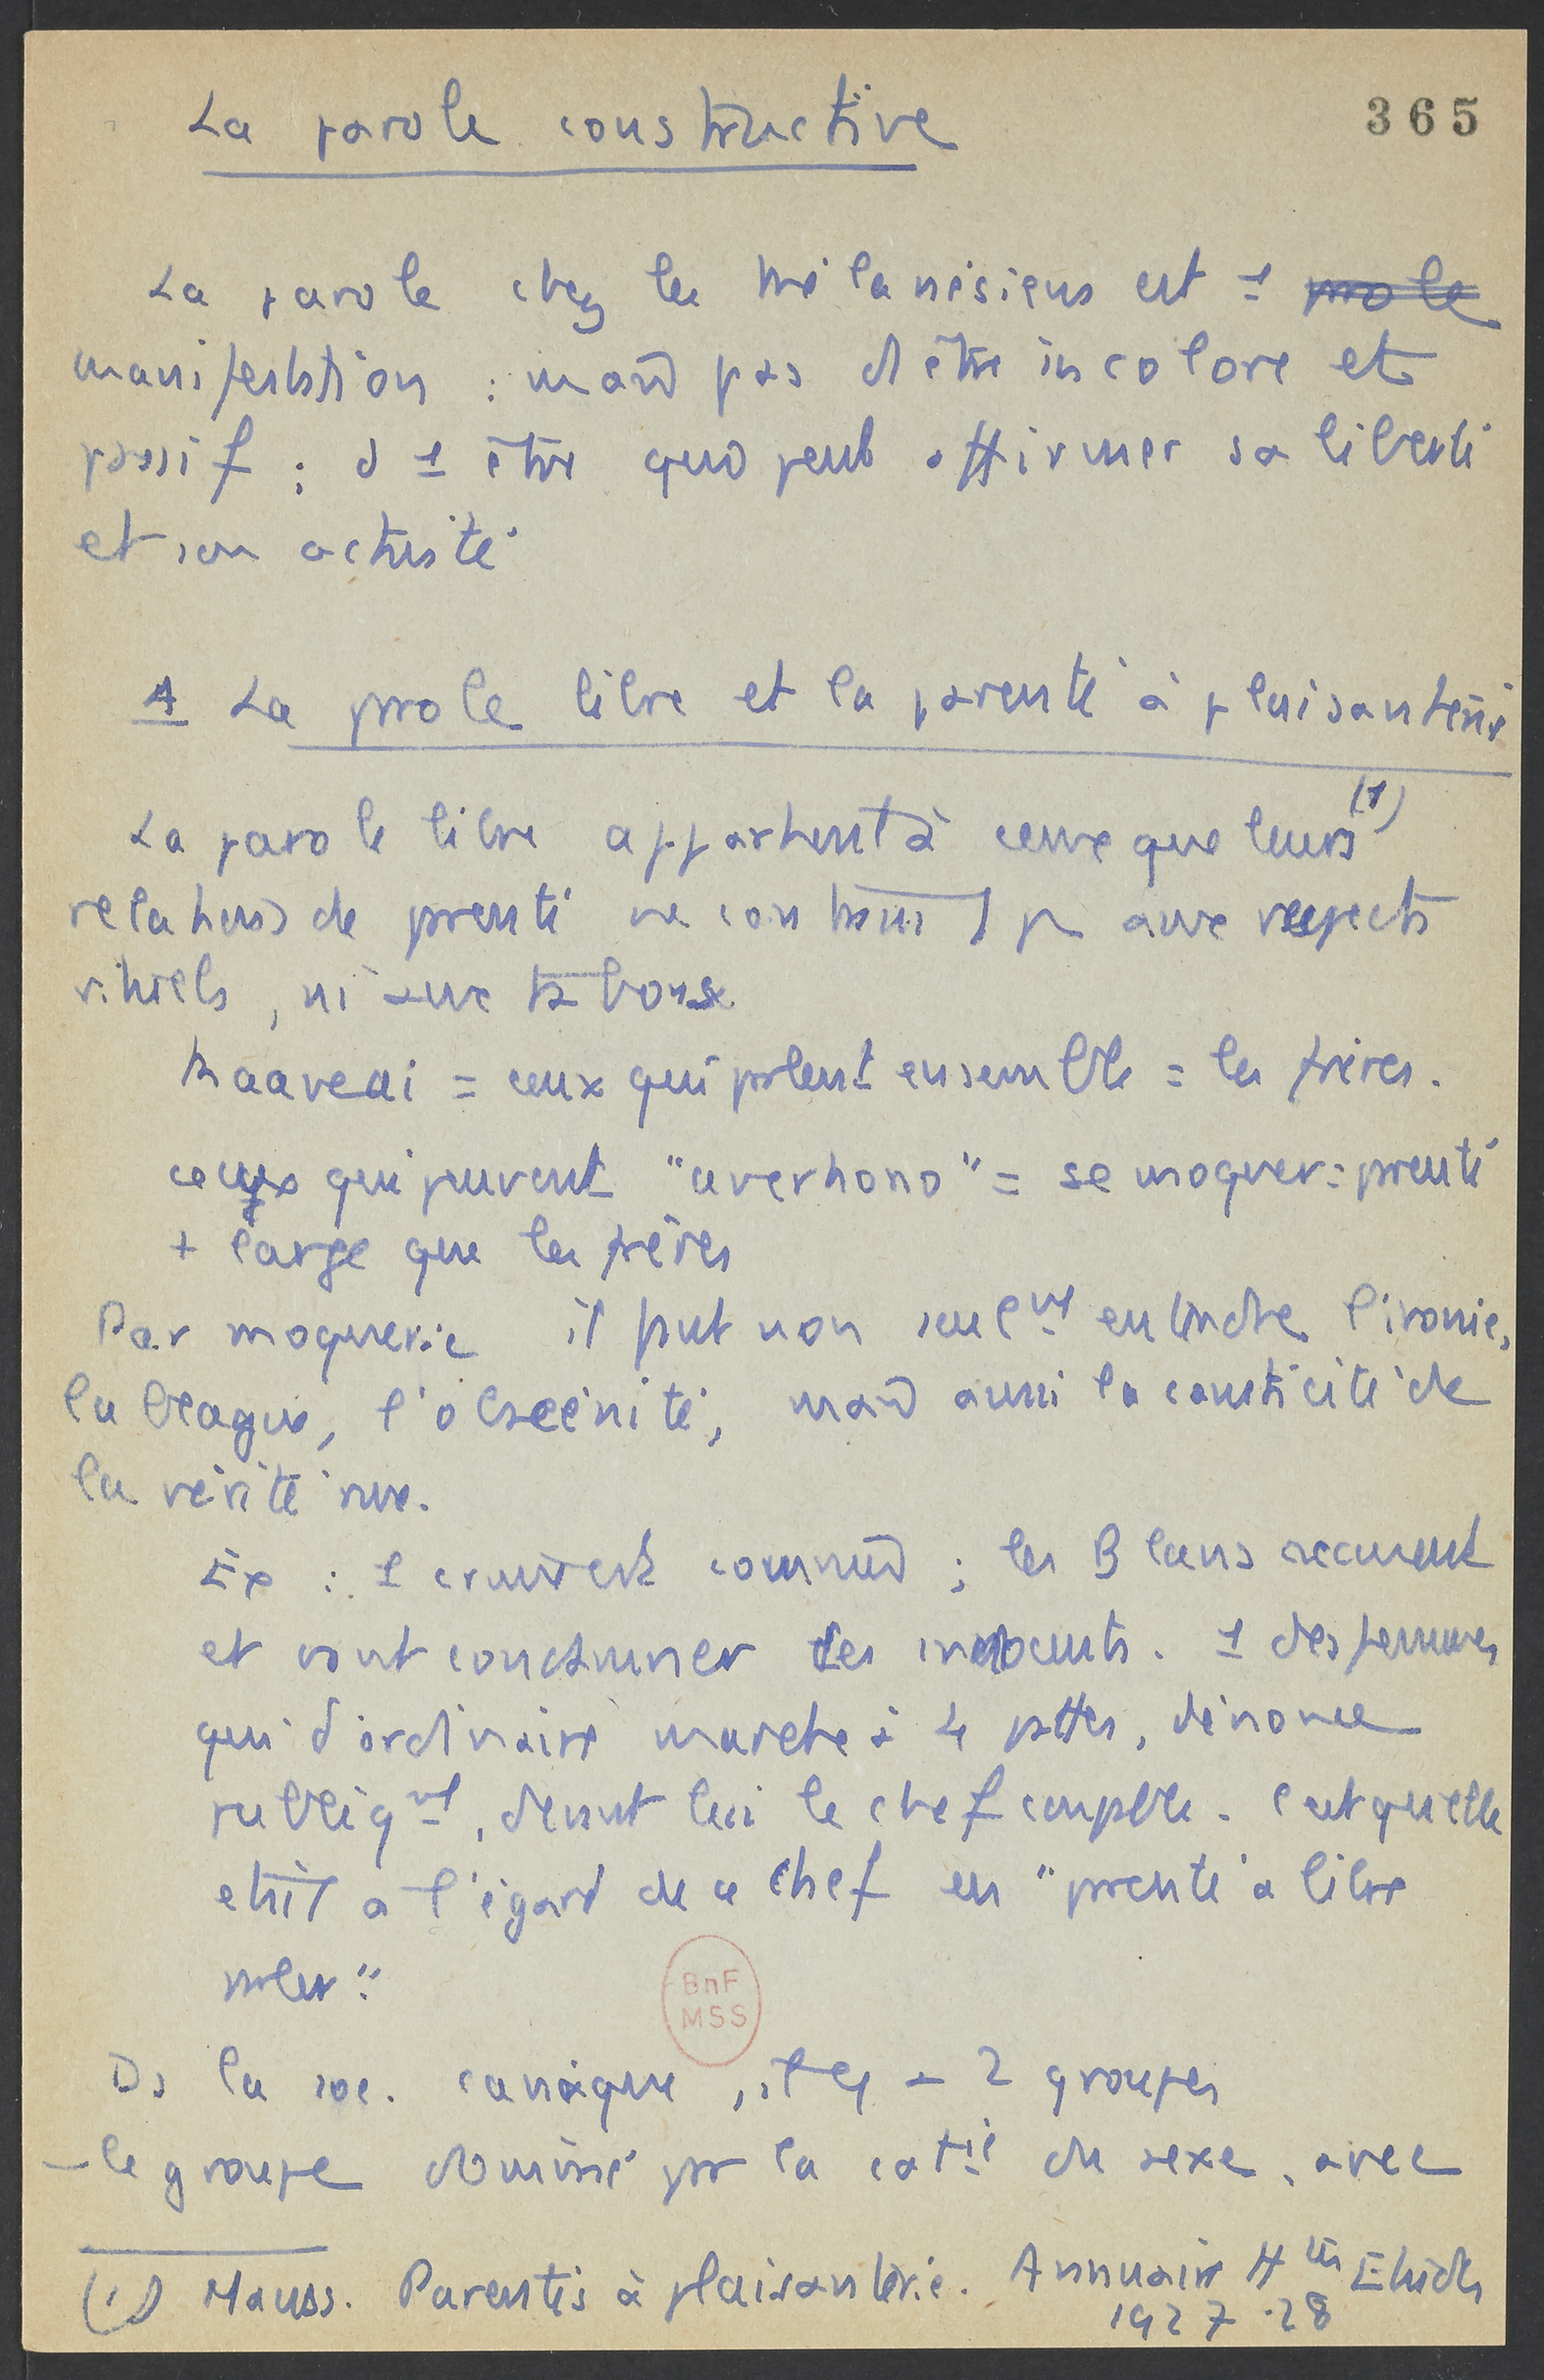 365
La parole constructive
La parole chez les Mélanésiens est 1 parole
manifestation : mais pas d'être incolore et
passif ; d 1 être qui peut affirmer sa liberté
et son activité
A La parole libre et la parenté à plaisanterie
La parole libre appartient à ceux que leurs (1)
relations de parenté ne contraint pas aux respects
rituels, ni aux tabous
Maaveai = ceux qui parlent ensemble = les frères.
ceux qui peuvent "averhono" = se moquer = parenté
+ large que les frères
Par moquerie il faut non seulmt entendre l'ironie,
la blague, l'obscénité, mais aussi la causticité de
la vérité nue.
Ex : 1 crime est commis ; les Blancs accusent
et vont condamner des innocents. 1 des femmes
qui d'ordinaire marche à 4 pattes, dénonce
publiqmt, devant lui le chef coupable. C'est qu'elle
était à l'égard de ce chef en "parenté à libre
parler".
Ds la soc. canaque, il y a 2 groupes
- le groupe dominé par la catie du sexe, avec
(1) Mauss. Parentés à plaisanterie. Annuaire Htes Etudes
1927-28
BnF
MSS